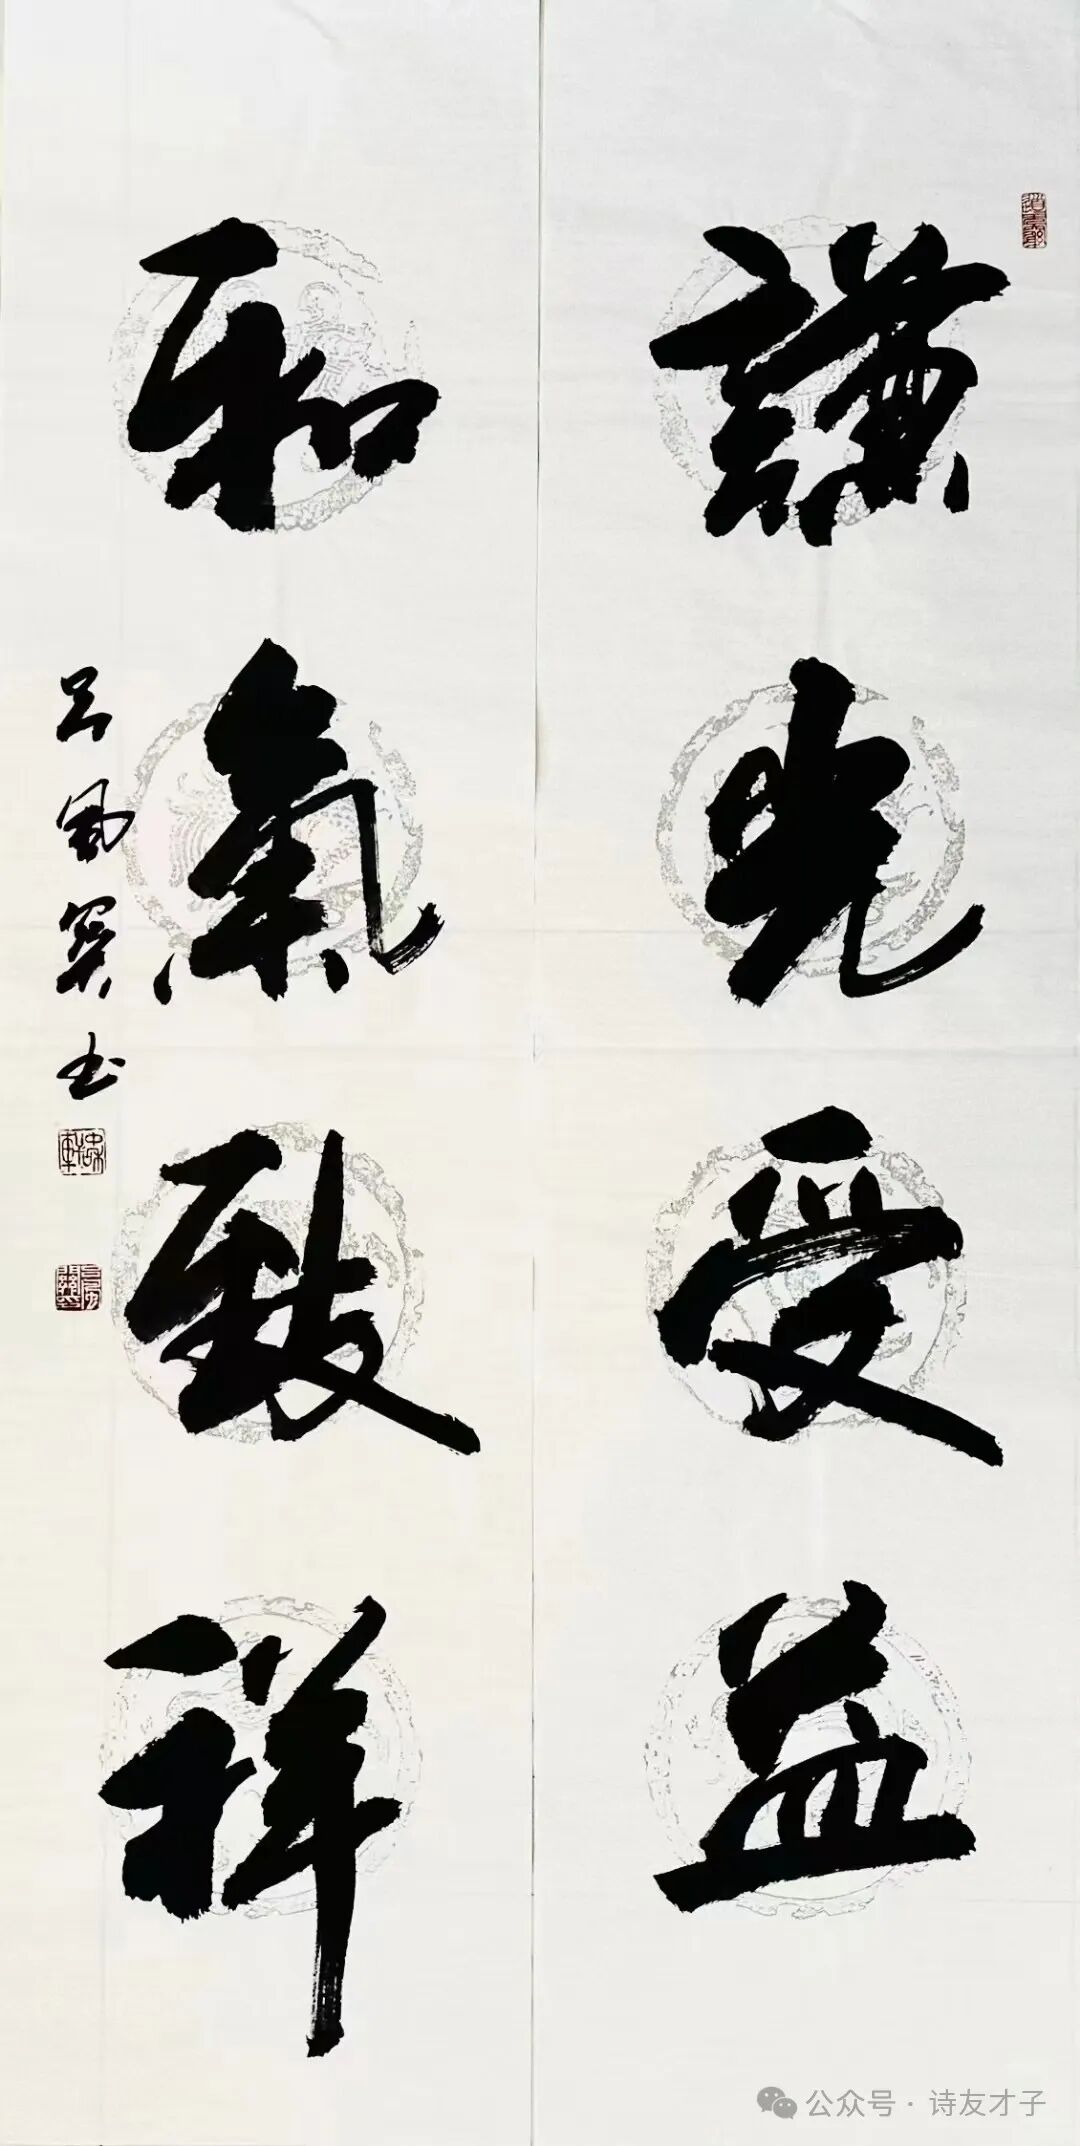 謙光受益
和氣致祥
吕凤书
公众号 · 诗友才子